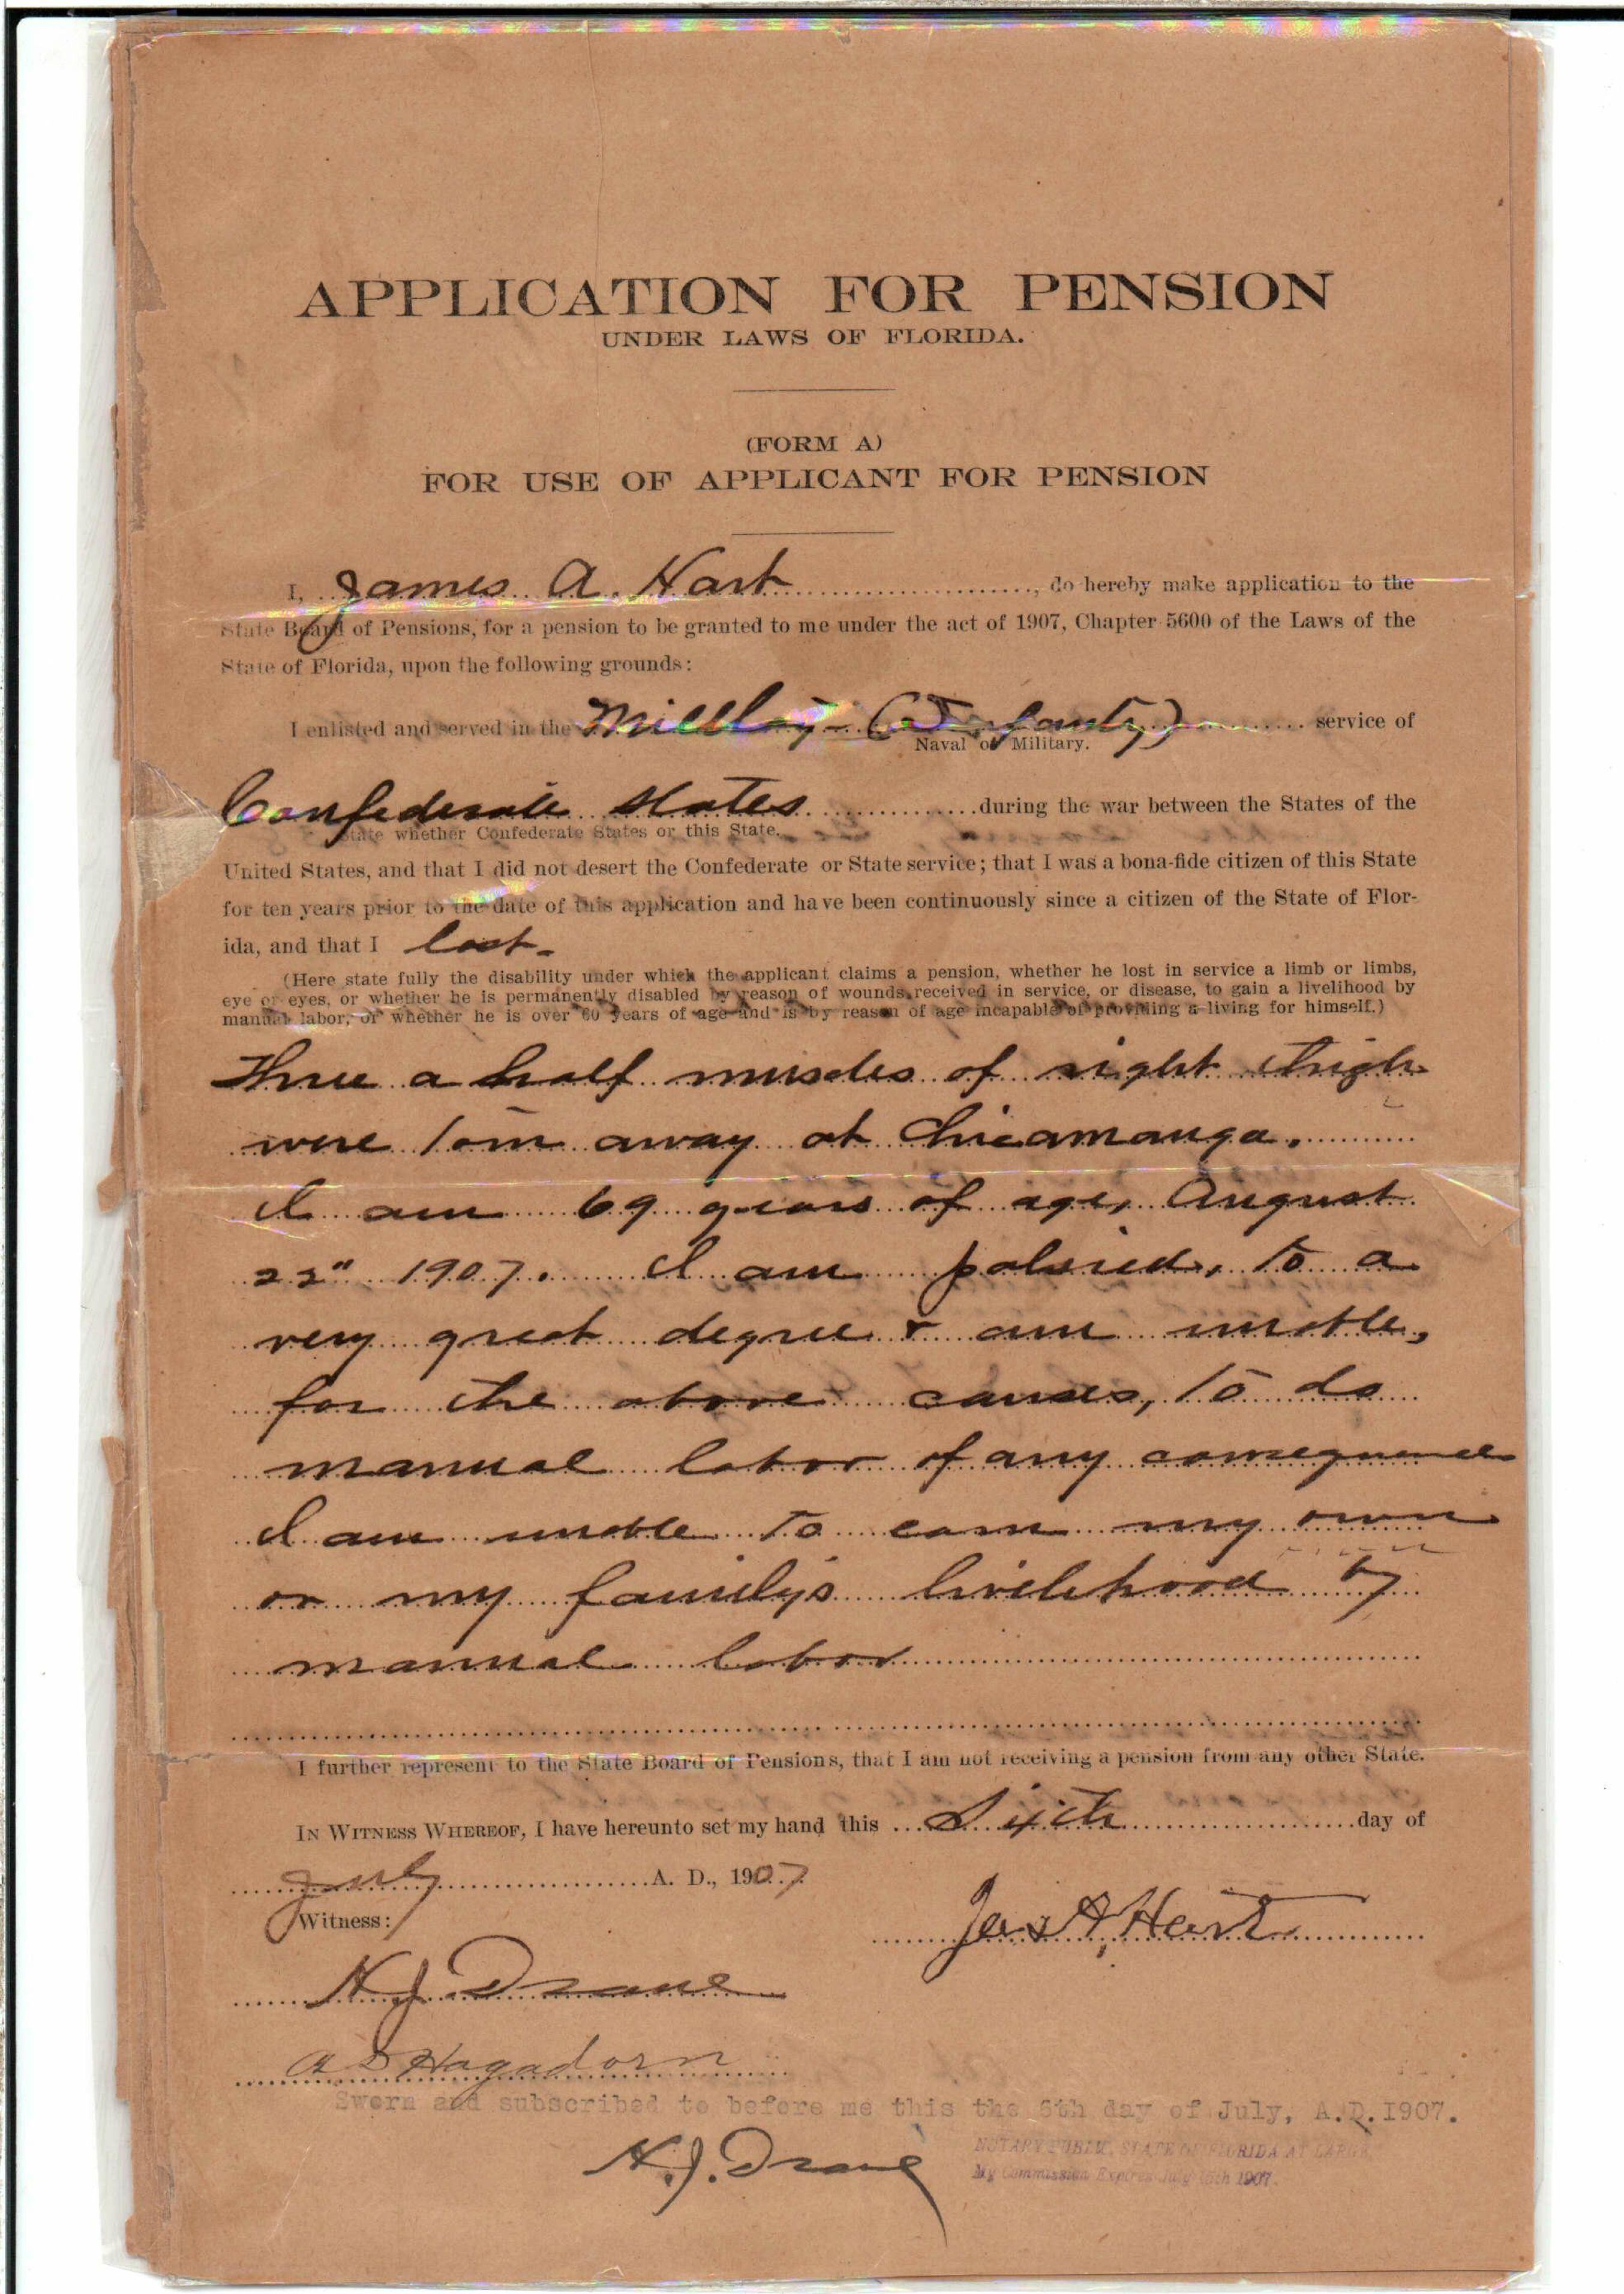 APPLICATION FOR PENSION
UNDER LAWS OF FLORIDA.
(FORM A)
FOR USE OF APPLICANT FOR PENSION
I, James A. Hart, do hereby make application to the
State Board of Pensions, for a pension to be granted to me under the act of 1907, Chapter 5600 of the Laws of the
State of Florida, upon the following grounds:
I enlisted and served in the (Infanty) service of
Naval or Military.
Confederate States during the war between the States of the
State whether Confederate States or this State.
United States, and that I did not desert the Confederate or State service; that I was a bona-fide citizen of this State
for ten years prior to the date of this application and have been continuously since a citizen of the State of Flor-
ida, and that I lost.
(Here state fully the disability under which the applicant claims a pension, whether he lost in service a limb or limbs,
eye or eyes, or whether he is permanently disabled by reason of wounds received in service, or disease, to gain a livelihood by
manual labor, or whether he is over 60 years of age and is by reason of age incapable of providing a living for himself.)
Three a half muscles of right thigh
were torn away at Chicamauga.
I am 69 years of age, August
22" 1907. I am palsied, to a
very great degree & am unable,
for the above causes, to do
manual labor of any consequence
I am unable to earn my own
or my family's livelihood by
manual labor
I further represent to the State Board of Pensions, that I am not receiving a pension from any other State.
IN WITNESS WHEREOF, I have hereunto set my hand this Sixth day of
July A. D., 1907.
Witness:
Jas A, Hart
H. J. Drane
A D Hagadorn
Sworn and subscribed to before me this the 6th day of July, A.D.1907.
H. J. Drane
NOTARY PUBLIC, STATE OF FLORIDA AT LARGE
My Commission Expires July 1907.